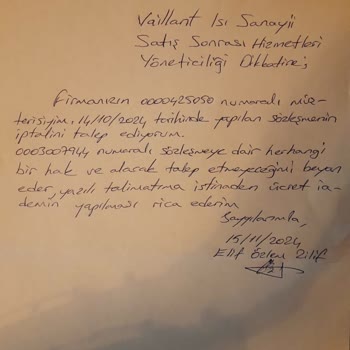 Vaillant Isı Sanayii
Satış Sonrası Hizmetleri
Yöneticiliği Dikkatine;
Firmanızın 0000425050 numaralı müş-
terisiyim, 14/10/2024 tarihinde yapılan sözleşmenin
iptalini talep ediyorum.
0003007944 numaralı sözleşmeye dair herhangi
bir hak ve alacak talep etmeyeceğimi beyan
eder, yazılı talimatıma istinaden ücret ia-
demin yapılması rica ederim
Saygılarımla,
15/11/2024
Elif Özlem Zilif